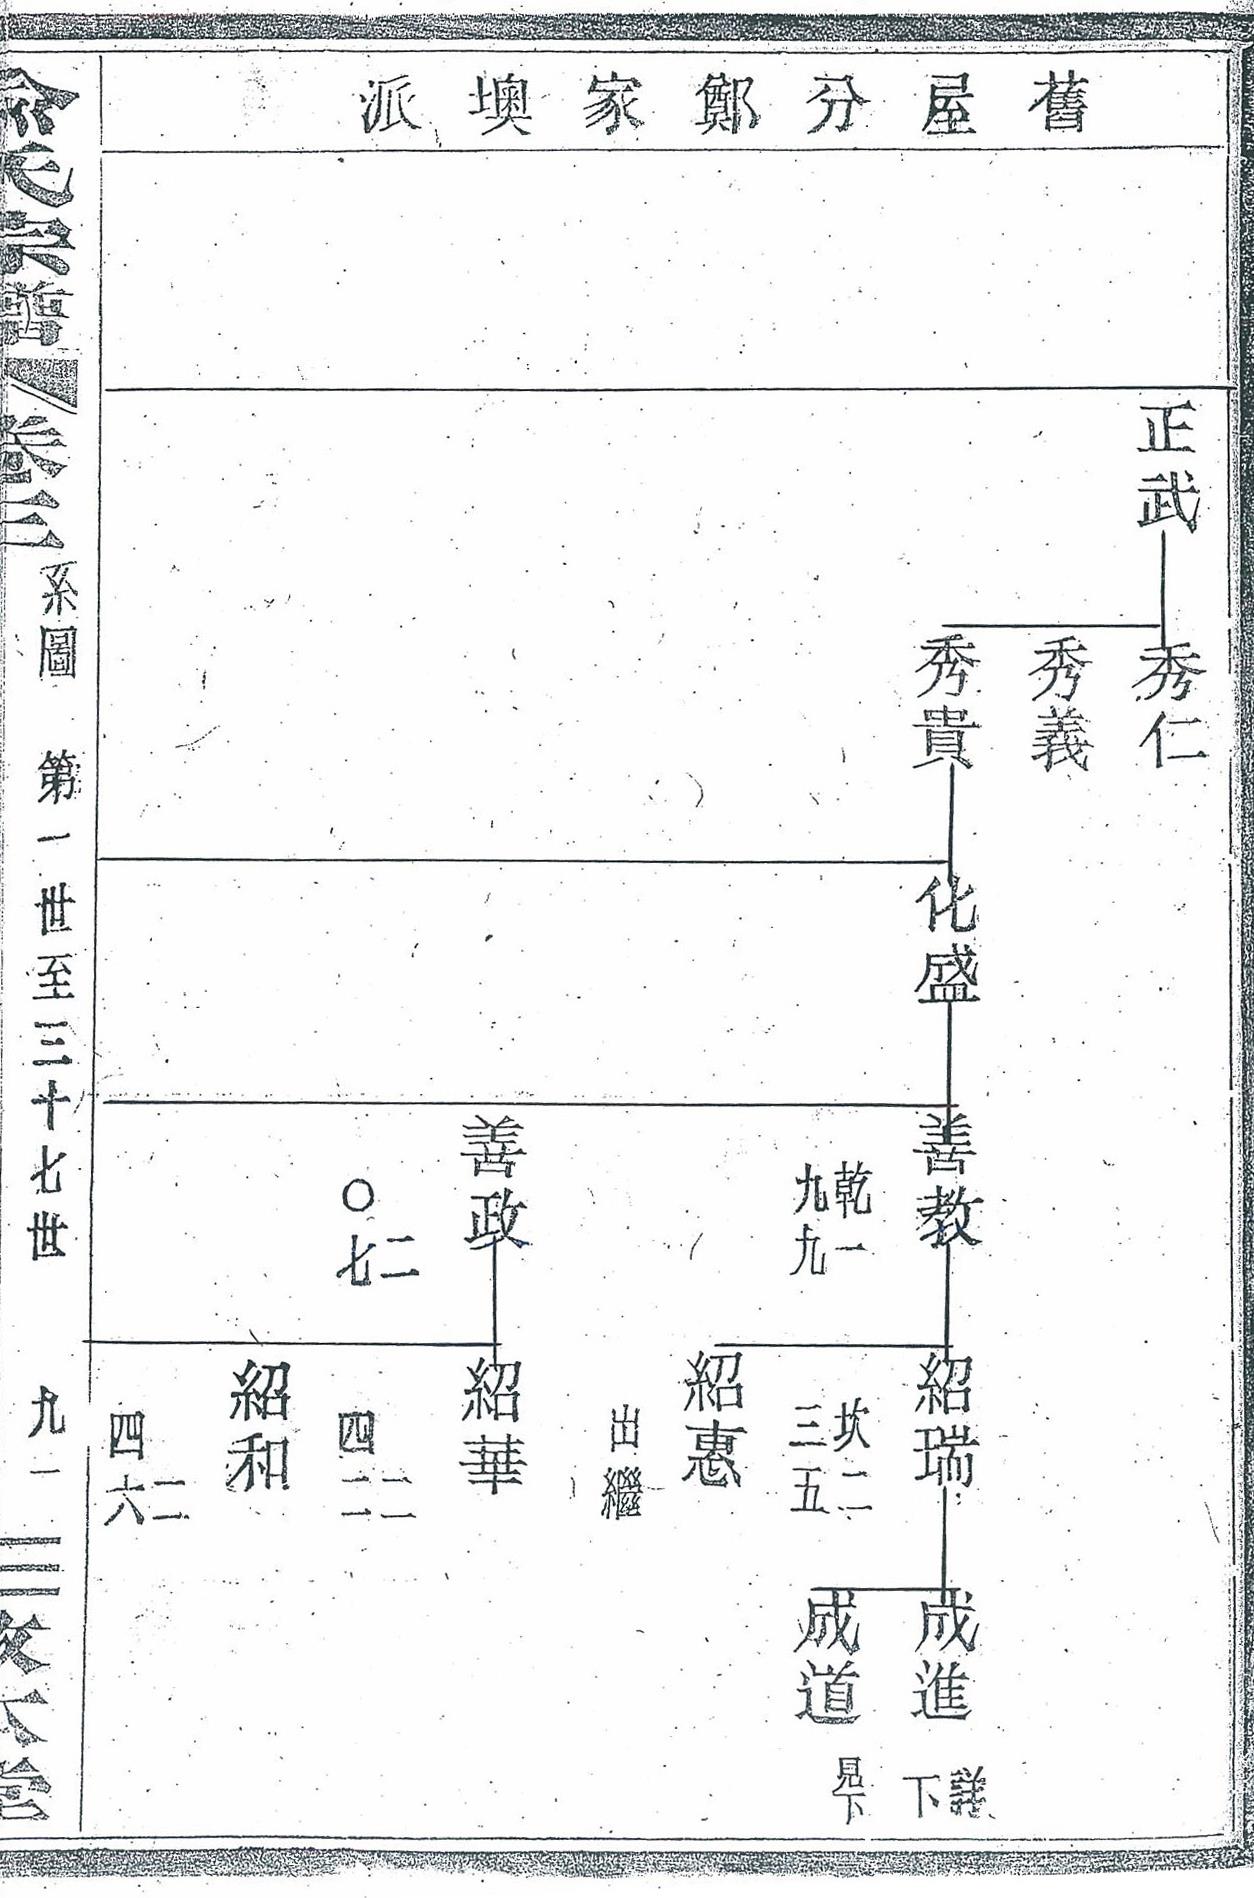 舊屋分鄭家墺派
正武
秀仁
秀義
秀貴
化盛
善教
乾一
九九
善政
二
〇七
紹瑞
坎二
三五
紹惠
出繼
紹華
二
四二
紹和
二
四六
成進
詳
下
成道
見下
氏宗譜
卷三
系圖 第一世至三十七世 九一